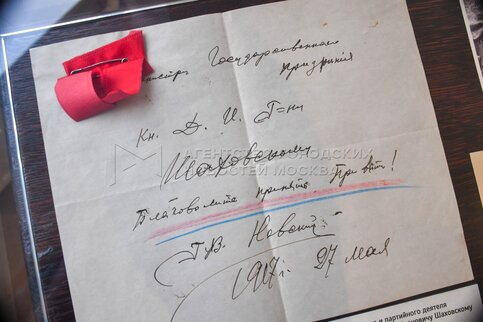 Министру Государственного
призрения
Кн. Д. И. Г-ну
Шаховскому
Благоволите принять. Привет!
Г.В. 
1917 г. 27 мая
АГЕНТСТВО ГОРОДСКИХ
НОВОСТЕЙ МОСКВА
и партийного деятеля
Шаховскому